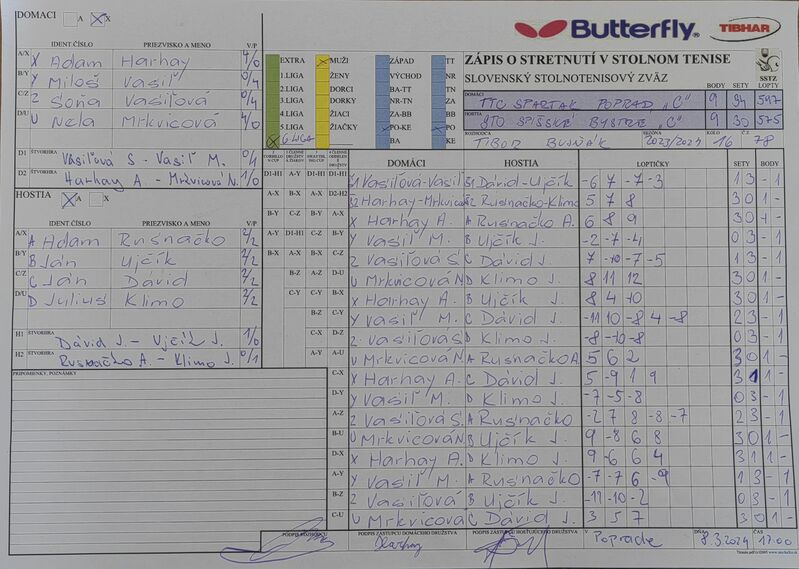 DOMÁCI A X
Butterfly TIBHAR
IDENT.ČÍSLO PRIEZVISKO A MENO V/P
A/X X Adam Harhay 4/0
B/Y Y Miloš Vasiľ 0/4
C/Z Z Soňa Vasiľová 0/4
D/U U Nela Mrkvicová 4/0
D1 ŠTVORHRA Vasiľová S - Vasiľ M. 0/1
D2 ŠTVORHRA Harhay A - Mrkvicová N. 1/0
HOSTIA A X
IDENT.ČÍSLO PRIEZVISKO A MENO V/P
A/X A Adam Rusnačko 2/2
B/Y B Ján Ujčík 2/2
C/Z C Ján Dávid 2/2
D/U D Július Klimo 2/2
H1 ŠTVORHRA Dávid J. - Ujčík J. 1/0
H2 ŠTVORHRA Rusnačko A. - Klimo J. 0/1
PRIPOMIENKY, POZNÁMKY
EXTRA MUŽI ZÁPAD TT
1.LIGA ŽENY VÝCHOD NR
2.LIGA DORCI BA-TT TN
3.LIGA DORKY NR-TN ZA
4.LIGA ŽIACI ZA-BB BB
5.LIGA ŽIAČKY PO-KE PO
6-LIGA BA KE
ZÁPIS O STRETNUTÍ V STOLNOM TENISE
SLOVENSKÝ STOLNOTENISOVÝ ZVÄZ
SSTZ
BODY SETY LOPTY
DOMÁCI TTC SPARTAK POPRAD "C" 9 34 597
HOSTIA STO SPIŠSKÉ BYSTRÉ "C" 9 30 575
ROZHODCA TIBOR BUJŇÁK SEZÓNA 2023/2024 KOLO 16 Č.ZT. 78
DOMÁCI HOSTIA LOPTIČKY SETY BODY
D1-H1 Vasiľová-Vasiľ Dávid-Ujčík -6 7 -7 -3 1 3 - 1
D2-H2 Harhay-Mrkvicová Rusnačko-Klimo 5 7 8 3 0 1 -
A-X X Harhay A. A Rusnačko A. 6 8 9 3 0 1 -
B-Y Y Vasiľ M. B Ujčík J. -2 -7 -4 0 3 - 1
C-Z Z Vasiľová S. C Dávid J. 7 -10 -7 -5 1 3 - 1
D-U U Mrkvicová N. D Klimo J. 8 11 12 3 0 1 -
B-X X Harhay A. B Ujčík J. 8 4 10 3 0 1 -
C-Y Y Vasiľ M. C Dávid J. -11 10 -8 4 -8 2 3 - 1
D-Z Z Vasiľová S. D Klimo J. -8 -10 -8 0 3 - 1
A-U U Mrkvicová N. A Rusnačko A. 5 6 2 3 0 1 -
C-X X Harhay A. C Dávid J. 5 -9 1 9 3 1 1 -
D-Y Y Vasiľ M. D Klimo J. -7 -5 -8 0 3 - 1
A-Z Z Vasiľová S. A Rusnačko -2 7 8 -8 -7 2 3 - 1
B-U U Mrkvicová N. B Ujčík J. 9 -8 6 8 3 1 -
D-X X Harhay A. D Klimo J. 9 -6 6 4 3 1 1 -
A-Y Y Vasiľ M. A Rusnačko -7 -7 6 -9 1 3 - 1
B-Z Z Vasiľová B Ujčík J. -11 -10 -2 0 3 - 1
C-U U Mrkvicová C Dávid J. 3 5 7 3 0 1 -
PODPIS ROZHODCU PODPIS ZÁSTUPCU DOMÁCEHO DRUŽSTVA Harhay PODPIS ZÁSTUPCU HOSŤUJÚCEHO DRUŽSTVA V Poprade DŇA 8.3.2024 ČAS 17.00